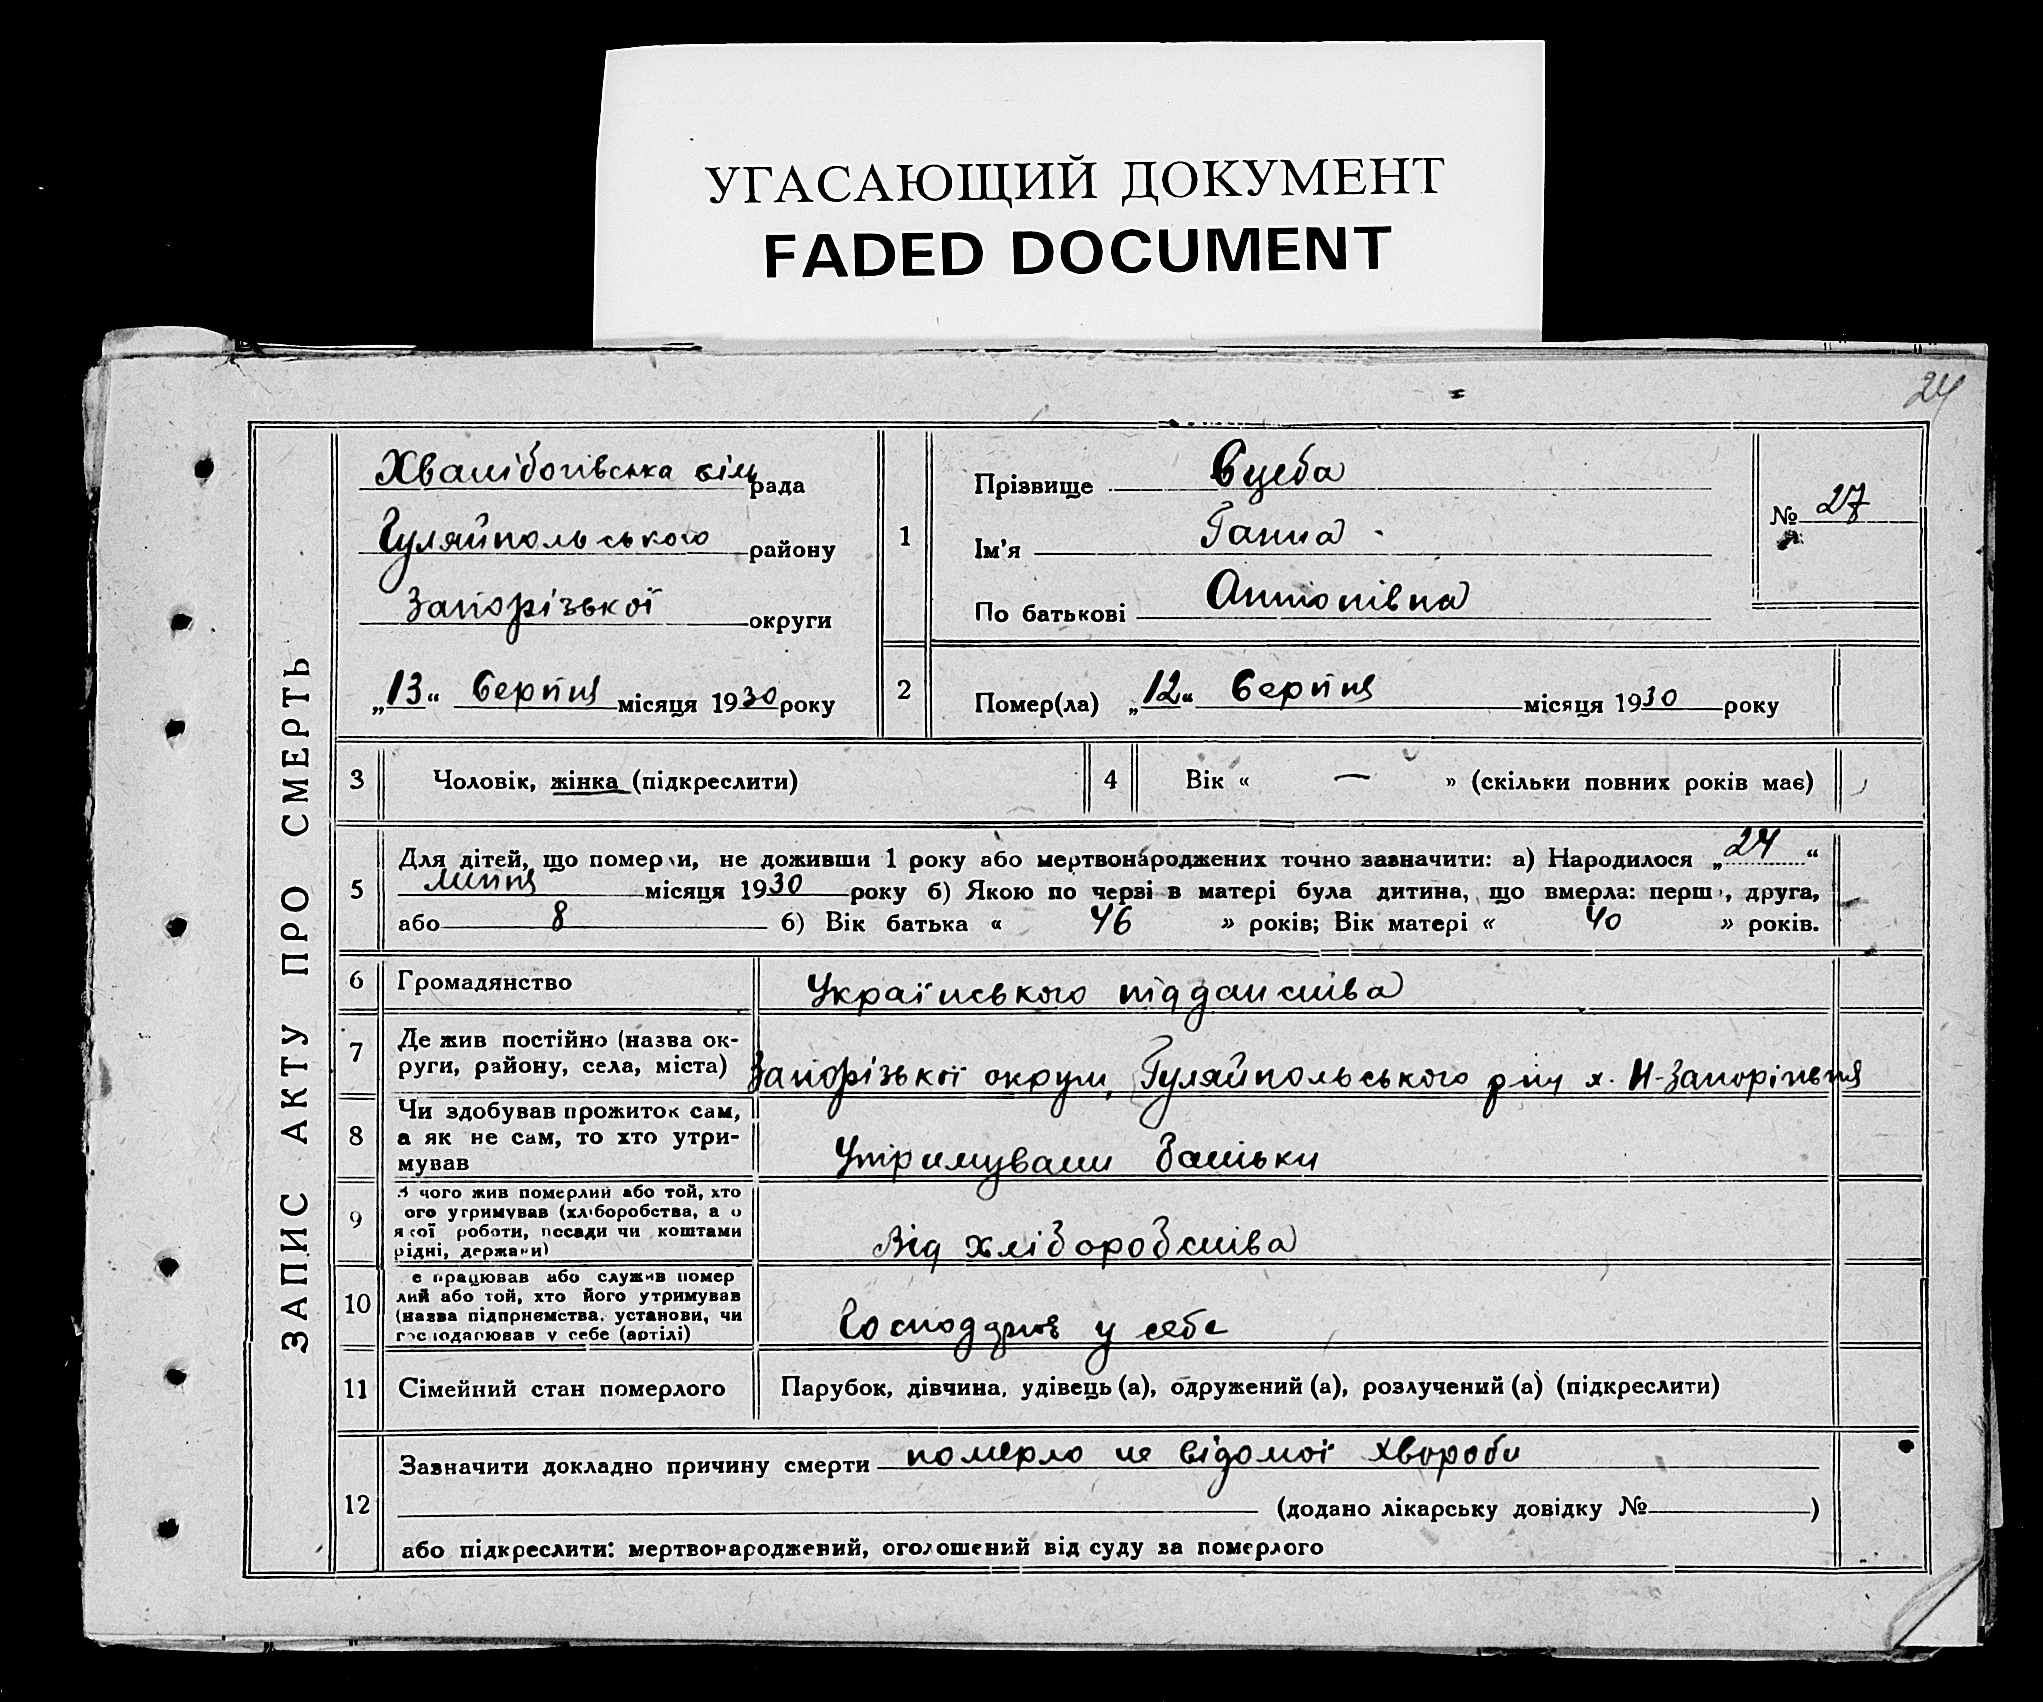 УГАСАЮЩИЙ ДОКУМЕНТ
FADED DOCUMENT
24
ЗАПИС АКТУ ПРО СМЕРТЬ
Хвалібогівська сіль рада
Гуляйпольського району
Запорізької округи
„13“ Серпня місяця 1930 року
1
Прізвище Вцеба
Ім'я Ганна
По батькові Антонівна
№ 27
2
Помер(ла) „12“ Серпня місяця 1930 року
3 Чоловік, жінка (підкреслити)
4 Вік « — » (скільки повних років має)
5
Для дітей, що померли, не доживши 1 року або мертвонароджених точно зазначити: а) Народилося „24“
липня місяця 1930 року б) Якою по черзі в матері була дитина, що вмерла: перша, друга,
або 8 б) Вік батька « 46 » років; Вік матері « 40 » років.
6 Громадянство Українського підданства
7 Де жив постійно (назва ок-
руги, району, села, міста) Запорізької округи, Гуляйпольського р-ну х. Н-Запоріжжя
8
Чи здобував прожиток сам,
а як не сам, то хто утри-
мував Утримували батьки
9
З чого жив померлий або той, хто
ого утримував (хліборобства, а о
якої роботи, посади чи коштами
рідні, держави) Від хліборобства
10
е працював або служив помер
лий або той, хто його утримував
(назва підприємства, установи, чи
господарював у себе (артілі) Господарюв у себе
11 Сімейний стан померлого Парубок, дівчина, удівець (а), одружений (а), розлучений (а) (підкреслити)
12
Зазначити докладно причину смерти померло не відомої хвороби
(додано лікарську довідку № )
або підкреслити: мертвонароджений, оголошений від суду за померлого